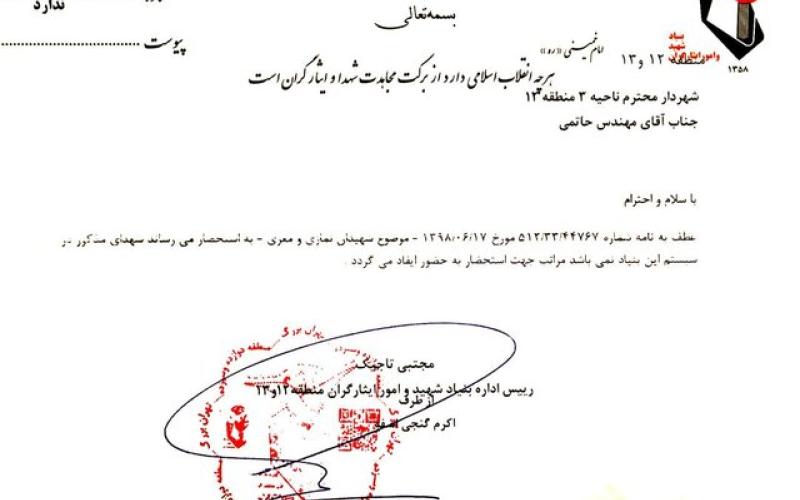 ندارد
بسمه‌تعالی
پیوست
بنیاد
شهید
وامور ایثارگران
۱۳۵۸
منطقه ۱۲ و ۱۳
امام خمینی «ره»
هرچه انقلاب اسلامی دارد از برکت مجاهدت شهدا و ایثارگران است
شهردار محترم ناحیه ۳ منطقه ۱۲
جناب آقای مهندس حاتمی
با سلام و احترام
عطف به نامه شماره ۵۱۲/۳۳/۴۴۷۶۷ مورخ ۱۳۹۸/۰۶/۱۷ - موضوع شهیدان نمازی و معزی - به استحضار می رساند شهدای مذکور در
سیستم این بنیاد نمی باشد مراتب جهت استحضار به حضور ایفاد می گردد .
مجتبی تاجیک
رییس اداره بنیاد شهید و امور ایثارگران منطقه ۱۲و۱۳
از طرف
اکرم گنجی
تهران بزرگ
منطقه دوازده وسیزده